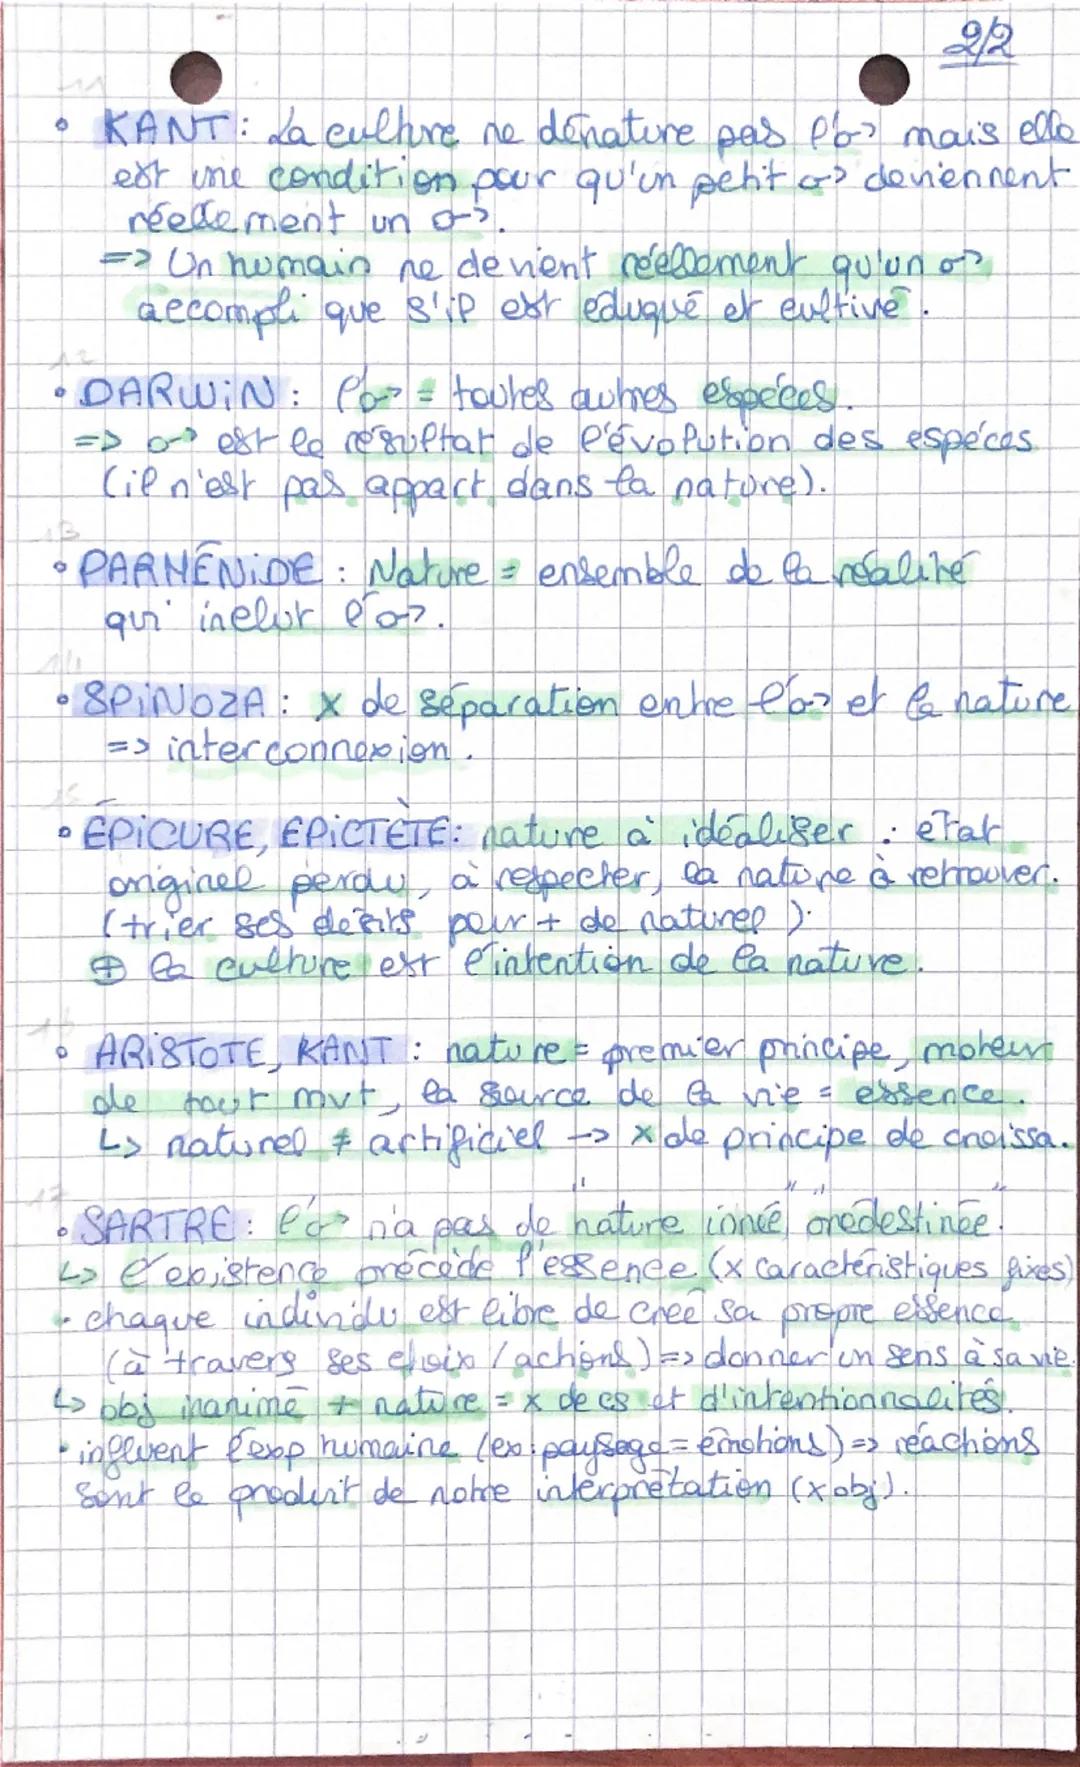 2/2
11
• KANT : La culture ne dénature pas l'♂ mais elle
est une condition pour qu'un petit ♂ deviennent
réellement un ♂.
=> Un humain ne devient réellement qu'un ♂
accompli que s'il est éduqué et cultivé.
12
• DARWiN : l'♂ = toutes autres espéces.
=> ♂ est le résultat de l'évolution des espéces
(il n'est pas appart dans la nature).
13
• PARMÉNiDE : Nature = ensemble de la réalité
qui inclut l'♂.
14
• SPiNOZA : x de séparation entre l'♂ et la nature
=> interconnexion.
15
• ÉPiCURE, ÉPiCTÈTE : nature à idéaliser : état
originel perdu, à respecter, la nature à retrouver.
(trier ses désirs pour + de naturel).
⊕ la culture est l'intention de la nature.
16
• ARiSTOTE, KANT : nature = premier principe, moteur
de tout mvt, la source de la vie = essence.
↳ naturel ≠ artificiel -> x de principe de croissa.
17
• SARTRE : l'♂ n'a pas de "nature innée" "prédestinée".
↳ l'existence précède l'essence (x caractéristiques fixes)
• chaque individu est libre de creé sa propre essence
(à travers ses choix / actions) => donner un sens à sa vie.
↳ obj inanimé + nature = x de cs et d'intentionnalités.
• influent l'exp humaine (ex : paysage = émotions) => réactions
sont le produit de notre interprétation (x obj).